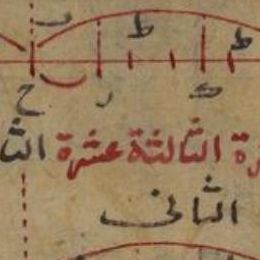 ط ط
ح ر ك
رة الثالثة عشرة الثا
الثانى